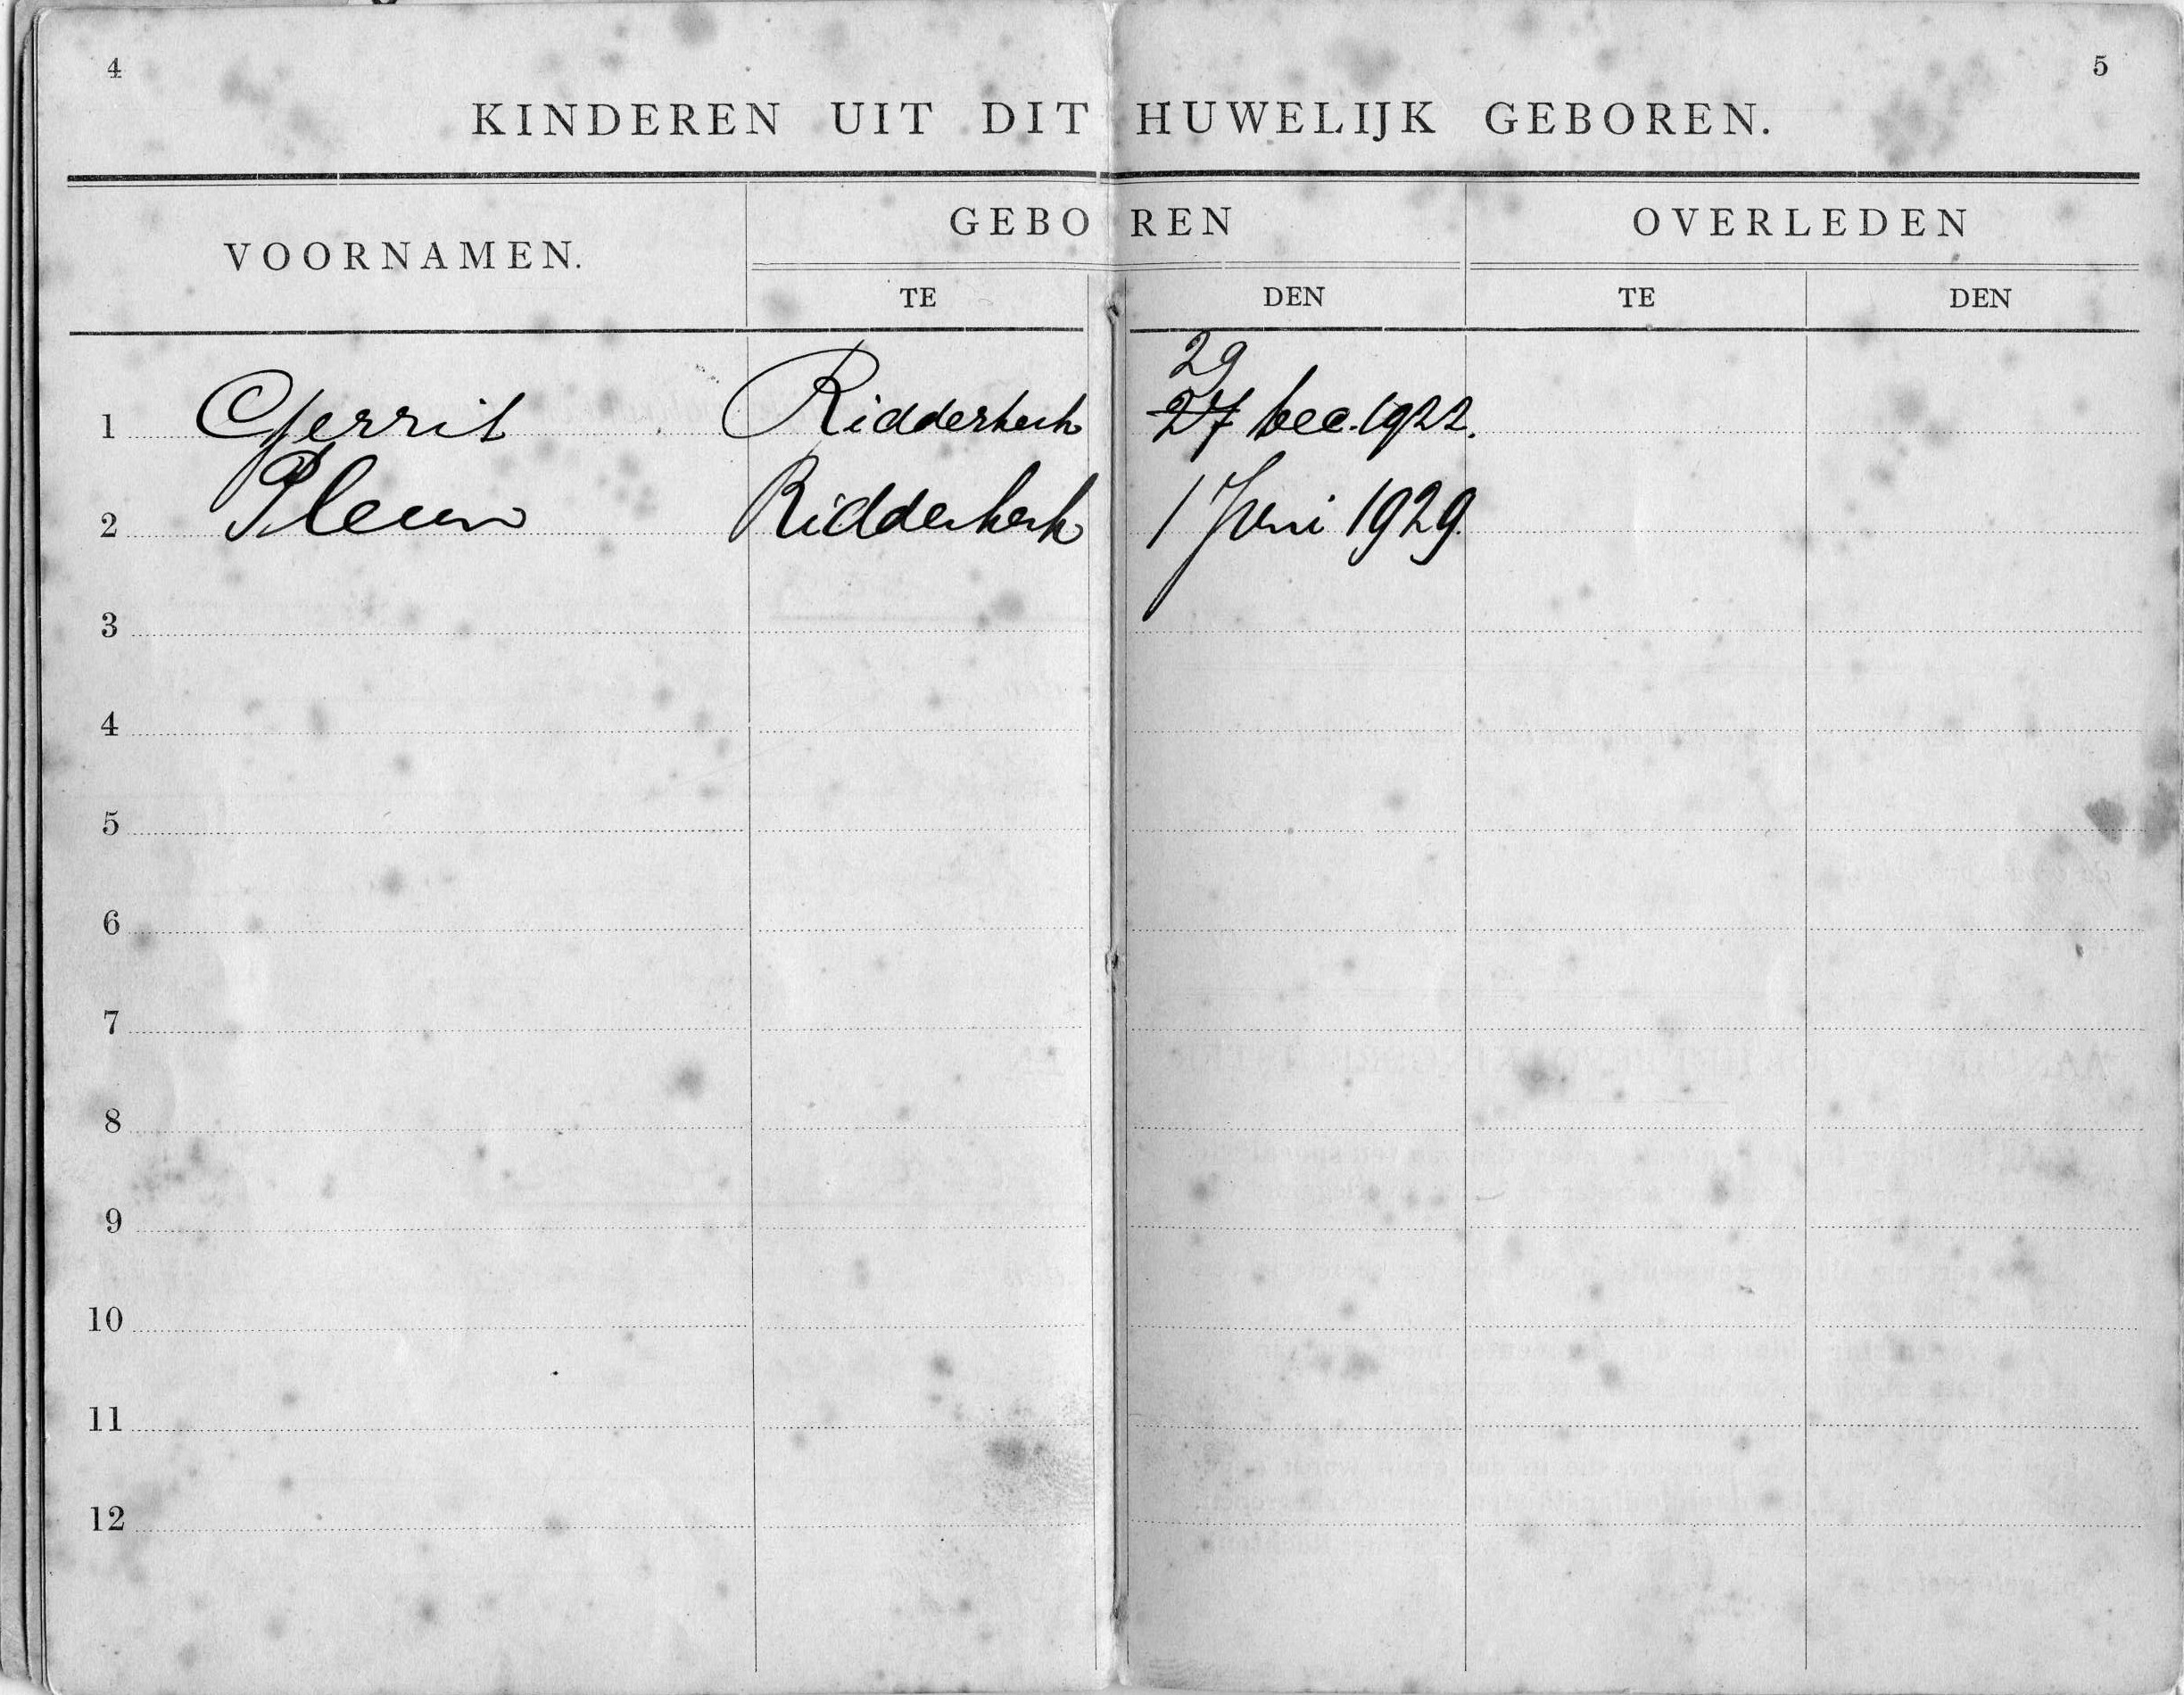 4
5
KINDEREN UIT DIT HUWELIJK GEBOREN.
VOORNAMEN.
GEBOREN
OVERLEDEN
TE
DEN
TE
DEN
29
1 Gerrit Ridderkerk 27 Dec. 1922.
2 Pleun Ridderkerk 1 Juni 1929.
3
4
5
6
7
8
9
10
11
12